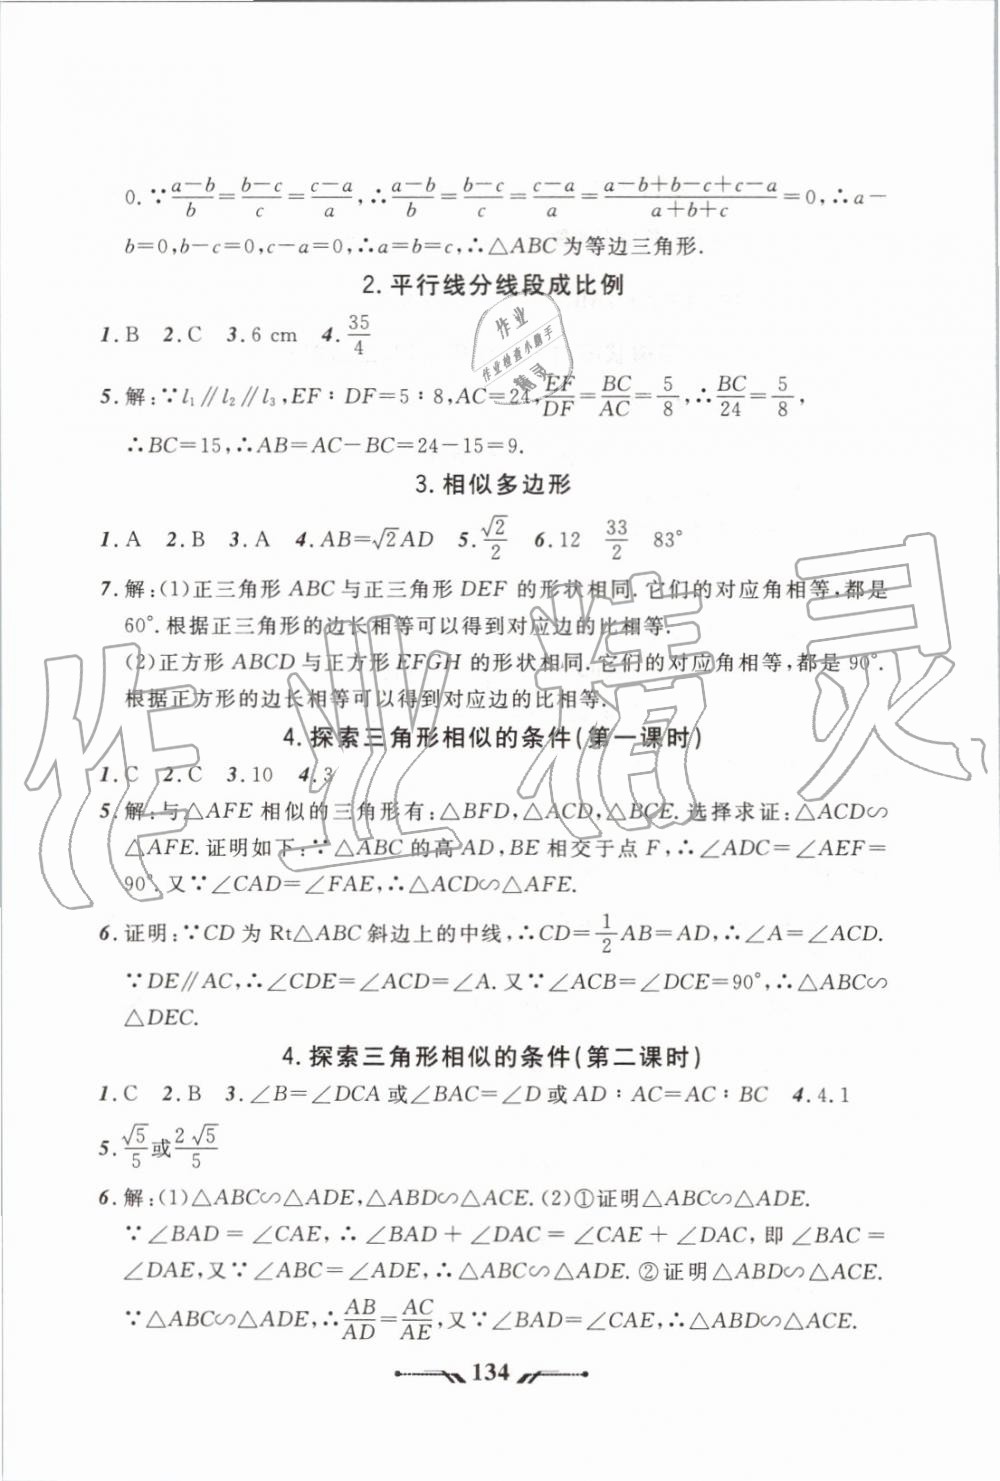 0.∵(a-b)/b=(b-c)/c=(c-a)/a,∴(a-b)/b=(b-c)/c=(c-a)/a=(a-b+b-c+c-a)/(a+b+c)=0,∴a-
b=0,b-c=0,c-a=0,∴a=b=c,∴△ABC为等边三角形.
2.平行线分线段成比例
1.B 2.C 3.6 cm 4.35/4
5.解:∵l₁∥l₂∥l₃,EF∶DF=5∶8,AC=24,EF/DF=BC/AC=5/8,∴BC/24=5/8,
∴BC=15,∴AB=AC-BC=24-15=9.
3.相似多边形
1.A 2.B 3.A 4.AB=√2AD 5.√2/2 6.12 33/2 83°
7.解:(1)正三角形ABC与正三角形DEF的形状相同.它们的对应角相等,都是
60°.根据正三角形的边长相等可以得到对应边的比相等.
(2)正方形ABCD与正方形EFGH的形状相同.它们的对应角相等,都是90°.
根据正方形的边长相等可以得到对应边的比相等.
4.探索三角形相似的条件(第一课时)
1.C 2.C 3.10 4.3
5.解:与△AFE相似的三角形有:△BFD,△ACD,△BCE.选择求证:△ACD∽
△AFE.证明如下:∵△ABC的高AD,BE相交于点F,∴∠ADC=∠AEF=
90°.又∵∠CAD=∠FAE,∴△ACD∽△AFE.
6.证明:∵CD为Rt△ABC斜边上的中线,∴CD=1/2AB=AD,∴∠A=∠ACD.
∵DE∥AC,∴∠CDE=∠ACD=∠A.又∵∠ACB=∠DCE=90°,∴△ABC∽
△DEC.
4.探索三角形相似的条件(第二课时)
1.C 2.B 3.∠B=∠DCA或∠BAC=∠D或AD∶AC=AC∶BC 4.4.1
5.√5/5或2√5/5
6.解:(1)△ABC∽△ADE,△ABD∽△ACE.(2)①证明△ABC∽△ADE.
∵∠BAD=∠CAE,∴∠BAD+∠DAC=∠CAE+∠DAC,即∠BAC=
∠DAE,又∵∠ABC=∠ADE,∴△ABC∽△ADE.②证明△ABD∽△ACE.
∵△ABC∽△ADE,∴AB/AD=AC/AE,又∵∠BAD=∠CAE,∴△ABD∽△ACE.
134
作业精灵
作业
作业检查小助手
精灵